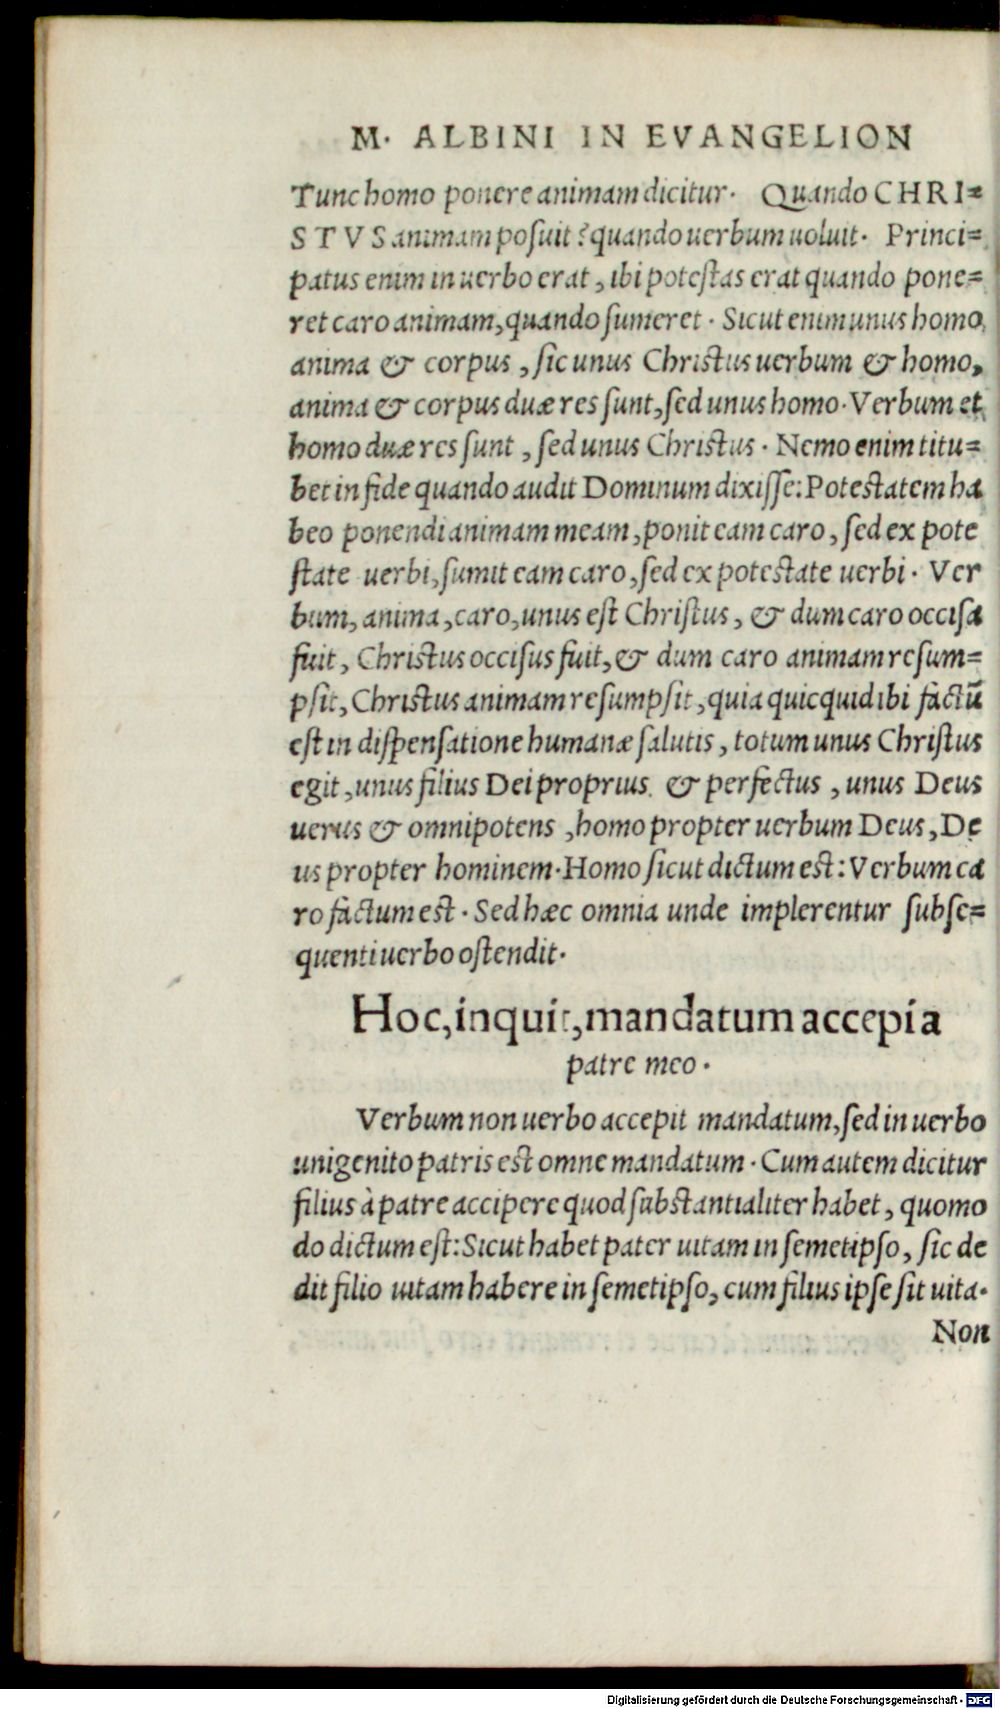 M. ALBINI IN EVANGELION
Tunc homo ponere animam dicitur. Quando CHRI=
STVS animam posuit? quando uerbum uoluit. Princi=
patus enim in uerbo erat, ibi potestas erat quando pone=
ret caro animam, quando sumeret. Sicut enim unus homo,
anima & corpus, sic unus Christus uerbum & homo,
anima & corpus duæ res sunt, sed unus homo. Verbum et
homo duæ res sunt, sed unus Christus. Nemo enim titu=
bet in fide quando audit Dominum dixisse: Potestatem ha
beo ponendi animam meam, ponit eam caro, sed ex pote
state uerbi, sumit eam caro, sed ex potestate uerbi. Ver
bum, anima, caro, unus est Christus, & dum caro occisa
fuit, Christus occisus fuit, & dum caro animam resum=
psit, Christus animam resumpsit, quia quicquid ibi factū
est in dispensatione humanæ salutis, totum unus Christus
egit, unus filius Dei proprius. & perfectus, unus Deus
uerus & omnipotens, homo propter uerbum Deus, De
us propter hominem. Homo sicut dictum est: Verbum ca
ro factum est. Sed hæc omnia unde implerentur subse=
quenti uerbo ostendit.
Hoc, inquit, mandatum accepi a
patre meo.
Verbum non uerbo accepit mandatum, sed in uerbo
unigenito patris est omne mandatum. Cum autem dicitur
filius à patre accipere quod substantialiter habet, quomo
do dictum est: Sicut habet pater uitam in semetipso, sic de
dit filio uitam habere in semetipso, cum filius ipse sit uita.
Non
Digitalisierung gefördert durch die Deutsche Forschungsgemeinschaft - DFG